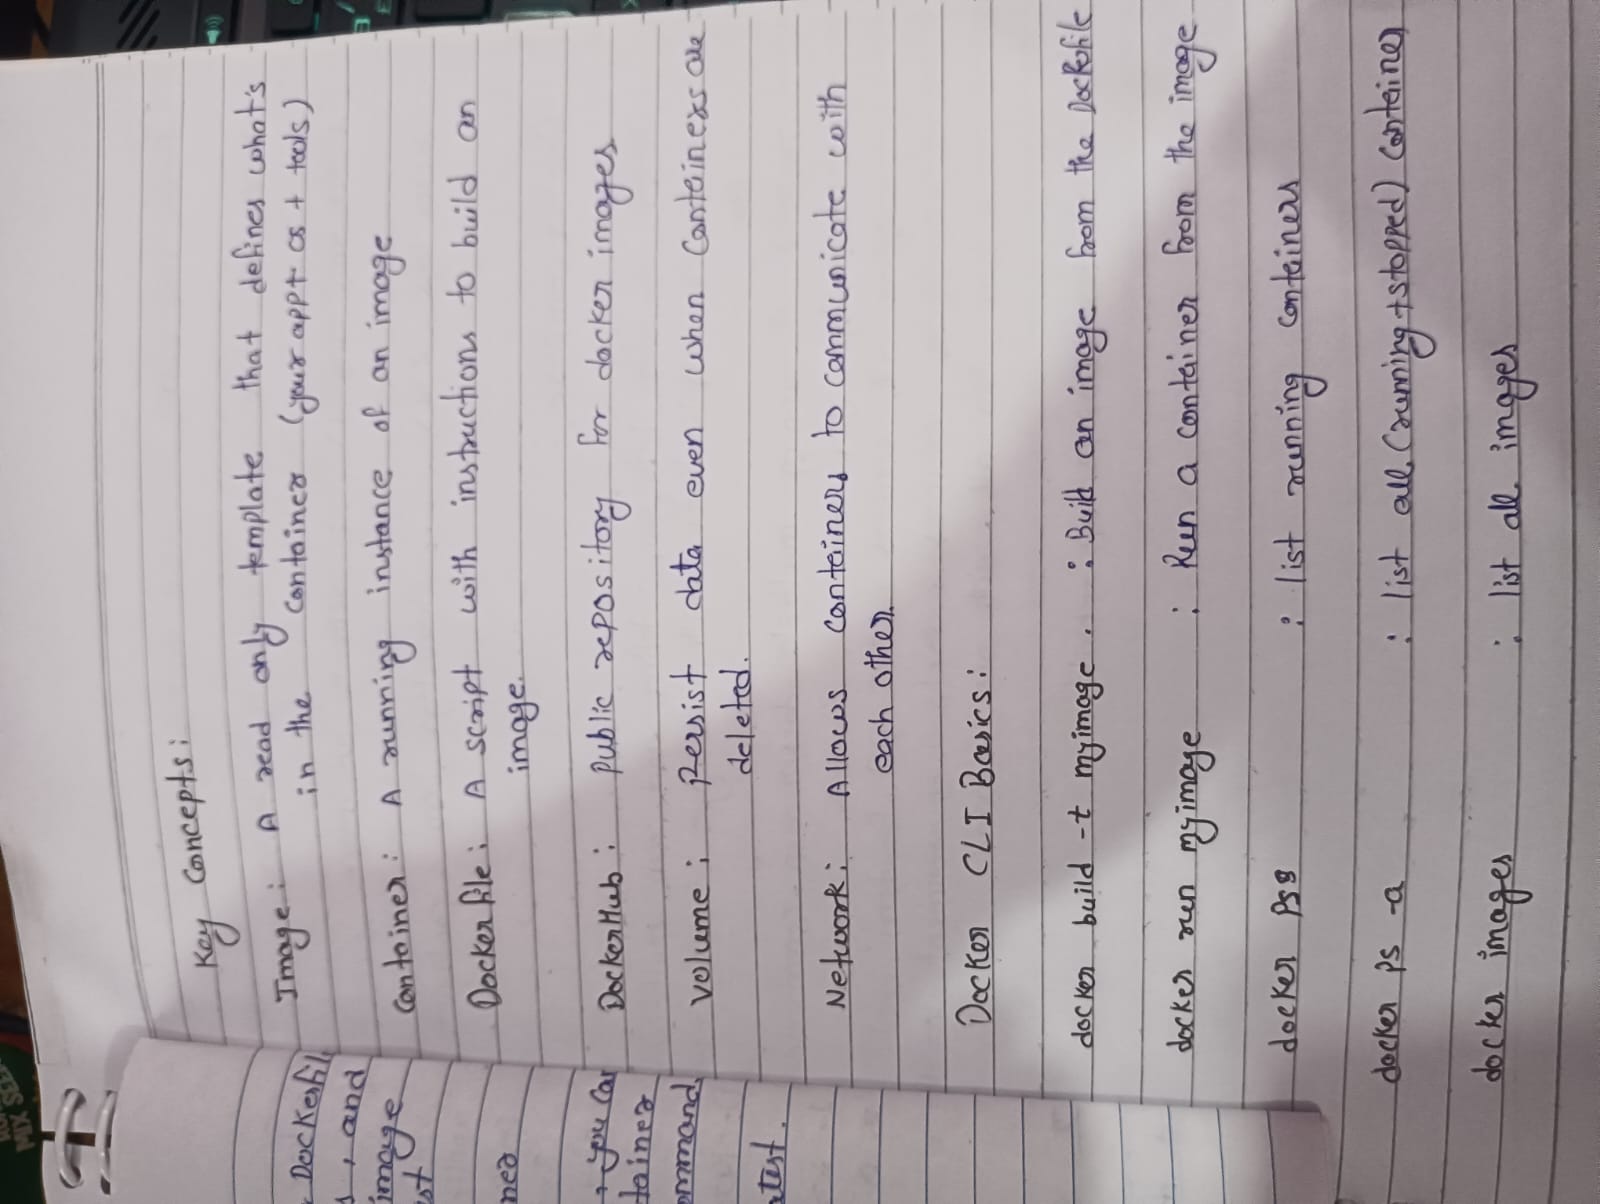 Key Concepts:
Image: A read only template that defines what's
in the container (your app + os + tools)
Container: A running instance of an image
Dockerfile: A script with instructions to build an
image.
DockerHub: public repository for docker images
Volume: Persist data even when containers are
deleted.
Network: Allows containers to communicate with
each other.
Docker CLI Basics:
docker build -t myimage . : Build an image from the Dockerfile
docker run myimage : Run a container from the image
docker ps : list running containers
docker ps -a : list all (running + stopped) container
docker images : list all images
Dockerfil
, and
image
you Ca
tainer
ommand
atest.